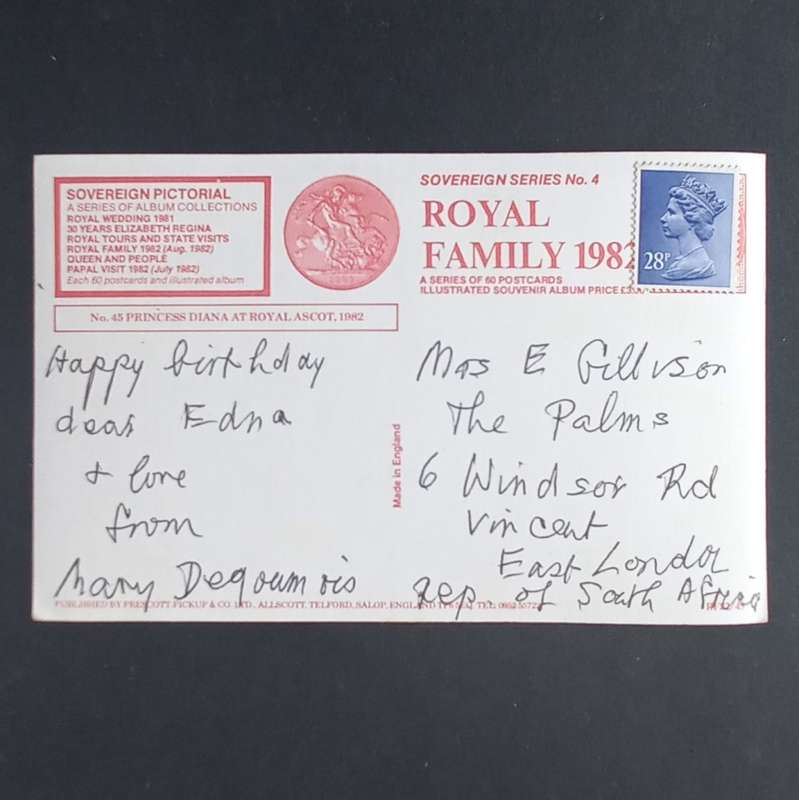 SOVEREIGN PICTORIAL
A SERIES OF ALBUM COLLECTIONS
ROYAL WEDDING 1981
30 YEARS ELIZABETH REGINA
ROYAL TOURS AND STATE VISITS
ROYAL FAMILY 1982 (Aug. 1982)
QUEEN AND PEOPLE
PAPAL VISIT 1982 (July 1982)
Each 60 postcards and illustrated album
No. 45 PRINCESS DIANA AT ROYAL ASCOT, 1982
SOVEREIGN SERIES No. 4
ROYAL
FAMILY 1982
A SERIES OF 60 POSTCARDS
ILLUSTRATED SOUVENIR ALBUM PRICE
28P
Happy birthday
dear Edna
& love
from
Mary
Made in England
Mrs E Gillison
The Palms
6 Windsor Rd
Vincent
East London
Rep. of South Africa
PUBLISHED BY PRESCOTT PICKUP & CO. LTD., ALLSCOTT, TELFORD, SALOP, ENGLAND